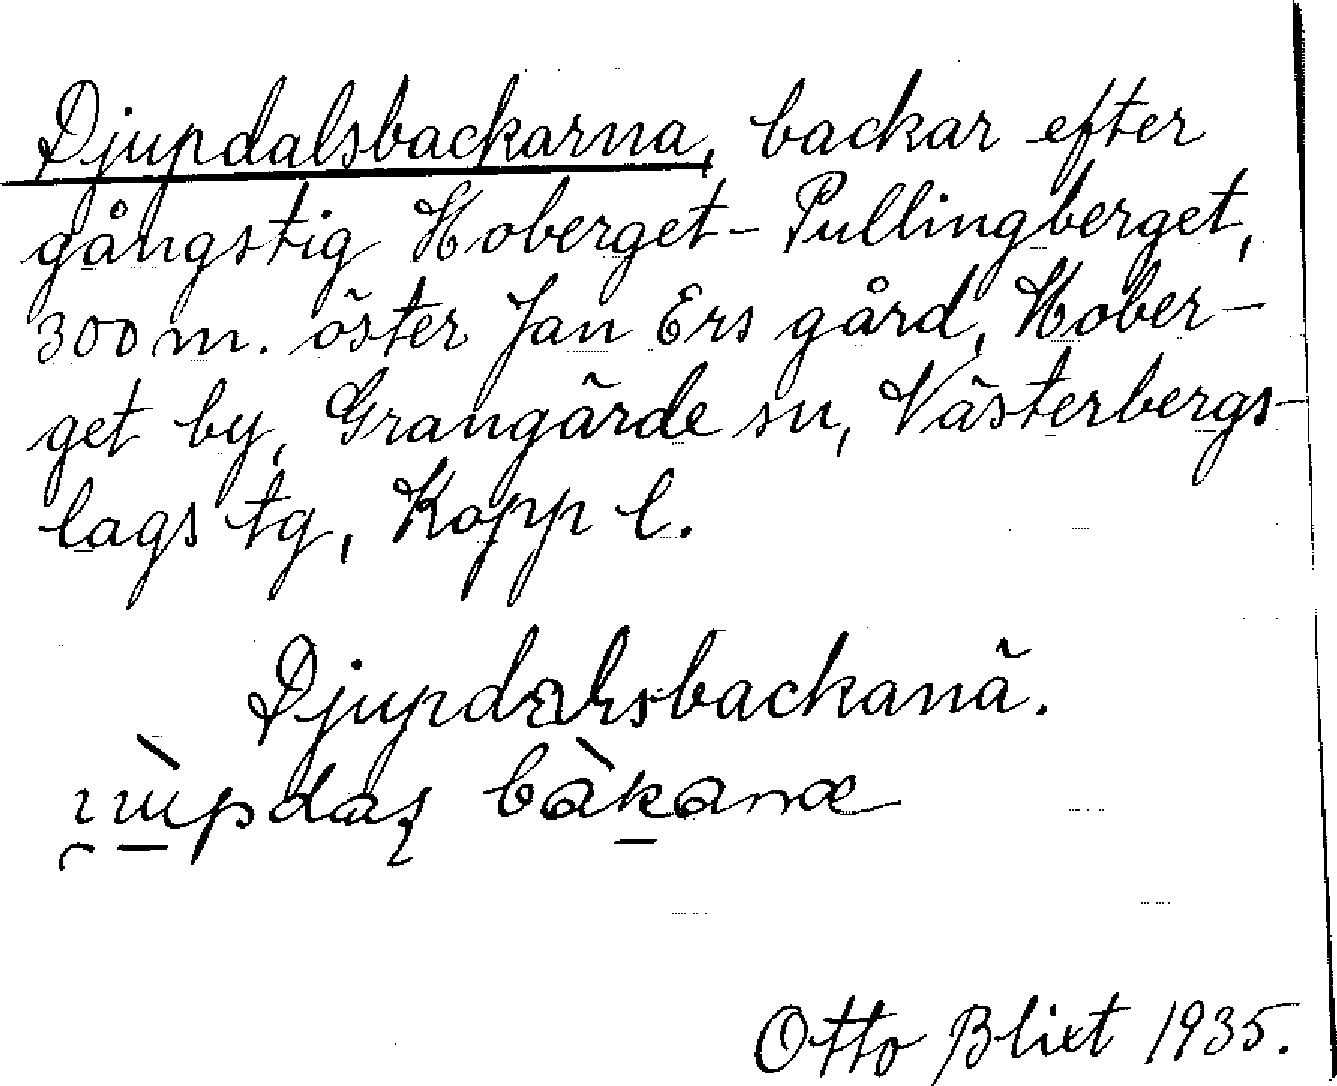 Djupdalsbackarna, backar efter
gångstig Hoberget - Pullingberget,
300 m. öster Jan Ers gård, Hober-
get by, Grangärde sn, Västerbergs-
lags tg, Kopp l.
Djupdalsbackanä.
Otto Blixt 1935.